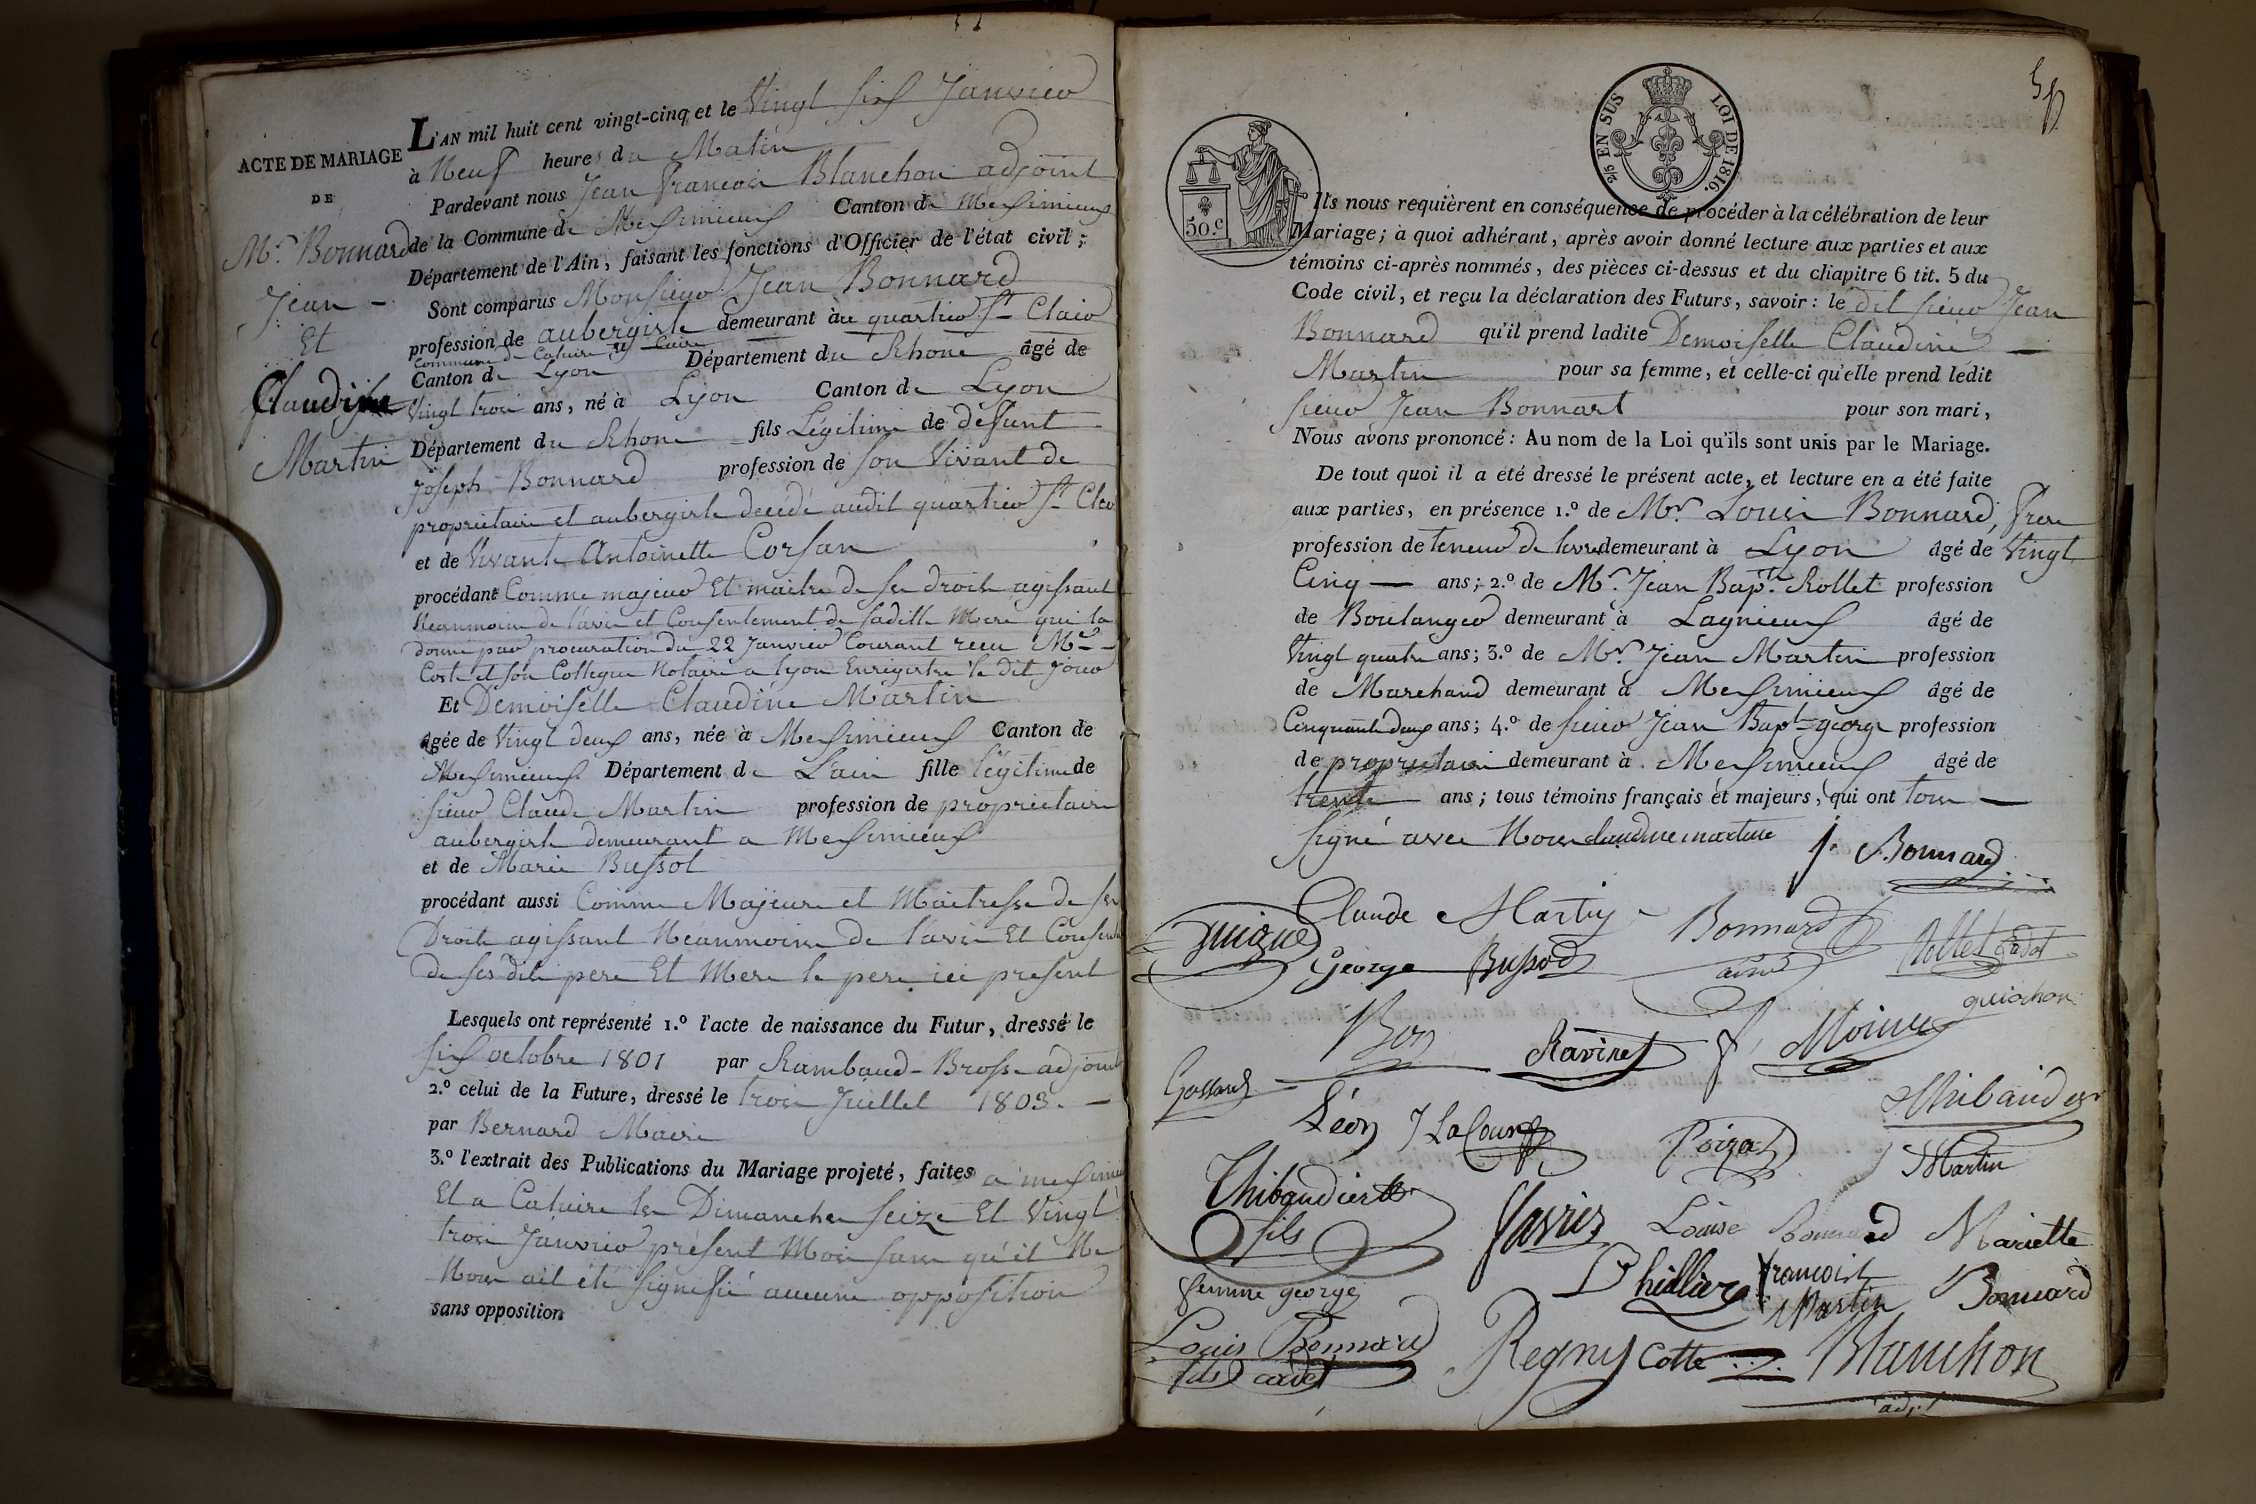 ACTE DE MARIAGE
DE
Mr. Bonnard
Jean
Et
Claudine
Martin
L'AN mil huit cent vingt-cinq et le Vingt six Janvier
à Neuf heures du Matin
Pardevant nous Jean francois Blanchon adjoint
de la Commune de Meximieux Canton de Meximieux
Département de l'Ain, faisant les fonctions d'Officier de l'état civil;
Sont comparus Monsieur Jean Bonnard
profession de aubergiste demeurant au quartier St Clair
Commune de Caluire et Cuire
Canton de Lyon Département du Rhone âgé de
Vingt trois ans, né à Lyon Canton de Lyon
Département du Rhone fils Légitime de défunt
Joseph Bonnard profession de Son Vivant de
propriétaire et aubergiste decédé audit quartier St Clair
et de Vivante Antoinette Corsan
procédant Comme majeur Et maitre de ses droits agissant
Néanmoins de l'avis et Consentement de sadille Mere qui la
donne par procuration du 22 Janvier Courant recu Me
Coste et son Collegue Notaire a lyon Enregistré le dit jour
Et Demoiselle Claudine Martin
âgée de Vingt deux ans, née à Meximieux Canton de
Meximieux Département de L'ain fille légitime de
sieur Claude Martin profession de propriétaire
aubergiste demeurant a Meximieux
et de Marie Bussot
procédant aussi Comme Majeure et Maitresse de ses
Droits agissant Neanmoins de l'avis Et Consent
de ses dits pere Et Mere le pere ici present
Lesquels ont représenté 1.º l'acte de naissance du Futur, dressé le
six octobre 1801 par Rambaud-Brosse adjoint
2.º celui de la Future, dressé le trois Juillet 1803.
par Bernard Maire
3.º l'extrait des Publications du Mariage projeté, faites a meximieux
Et a Caluire les Dimanches seize Et Vingt
trois Janvier présent Mois sans qu'il Ne
Nous ait été signifié aucune opposition
sans opposition
25 EN SUS LOI DE 1816.
50 c
Ils nous requièrent en conséquence de procéder à la célébration de leur
Mariage; à quoi adhérant, après avoir donné lecture aux parties et aux
témoins ci-après nommés, des pièces ci-dessus et du chapitre 6 tit. 5 du
Code civil, et reçu la déclaration des Futurs, savoir: le dit sieur Jean
Bonnard qu'il prend ladite Demoiselle Claudine
Martin pour sa femme, et celle-ci qu'elle prend ledit
sieur Jean Bonnart pour son mari,
Nous avons prononcé: Au nom de la Loi qu'ils sont unis par le Mariage.
De tout quoi il a été dressé le présent acte, et lecture en a été faite
aux parties, en présence 1.º de Mr. Louis Bonnard, frere
profession de teneur de livres demeurant à Lyon âgé de Vingt
Cinq ans; 2.º de Mr. Jean Bapte. Rollet profession
de Boulanger demeurant à Lagnieux âgé de
Vingt quatre ans; 3.º de Mr. Jean Martin profession
de Marchand demeurant à Meximieux âgé de
Cinquante deux ans; 4.º de sieur Jean Bapt george profession
de propriétaire demeurant à Meximieux âgé de
trente ans; tous témoins français et majeurs, qui ont tous
signé avec Nous claudine martine J. Bonnard
Claude Martin
guigue Bonnard ainé
George Bussod Rollet Cadot
guiochon
Bon Ravinet Moine
Galland
Léon J LaCour Poizat Thibaudier
Martin
Thibaudier
fils Favrier Louise Bonnard Mariette
Bonnard
femme george Lhuillier francoist
Martin
Louis Bonnard Regny Cotte Blanchon
fils cadet adjt